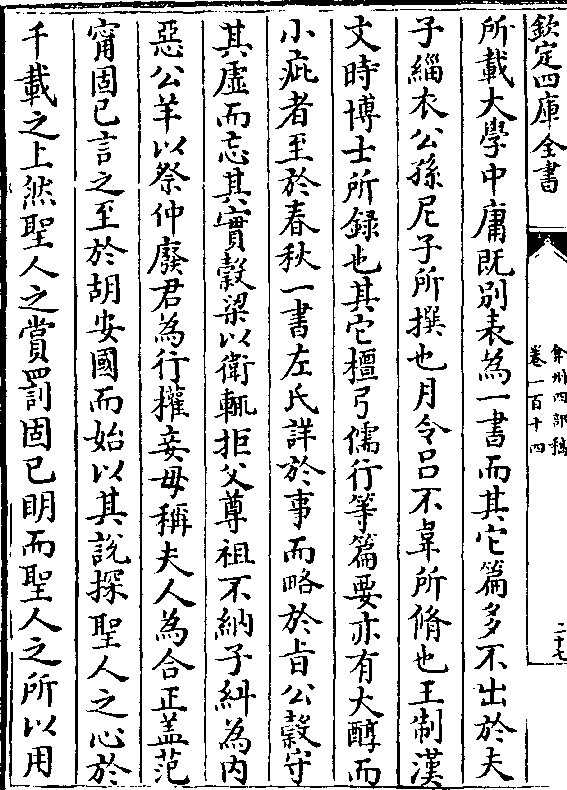 欽定四庫全書
弇州四部稿
卷一百十四
二十七
所載大學中庸既別表為一書而其它篇多不出於夫
子緇衣公孫尼子所撰也月令呂不韋所脩也王制漢
文時博士所録也其它檀弓儒行等篇要亦有大醇而
小疵者至於春秋一書左氏詳於事而略於旨公穀守
其虛而忘其實穀梁以衛輒拒父尊祖不納子糾為内
惡公羊以祭仲廢君為行權妾母稱夫人為合正盖范
甯固已言之至於胡安國而始以其説探聖人之心於
千載之上然聖人之賞罰固已明而聖人之所以用